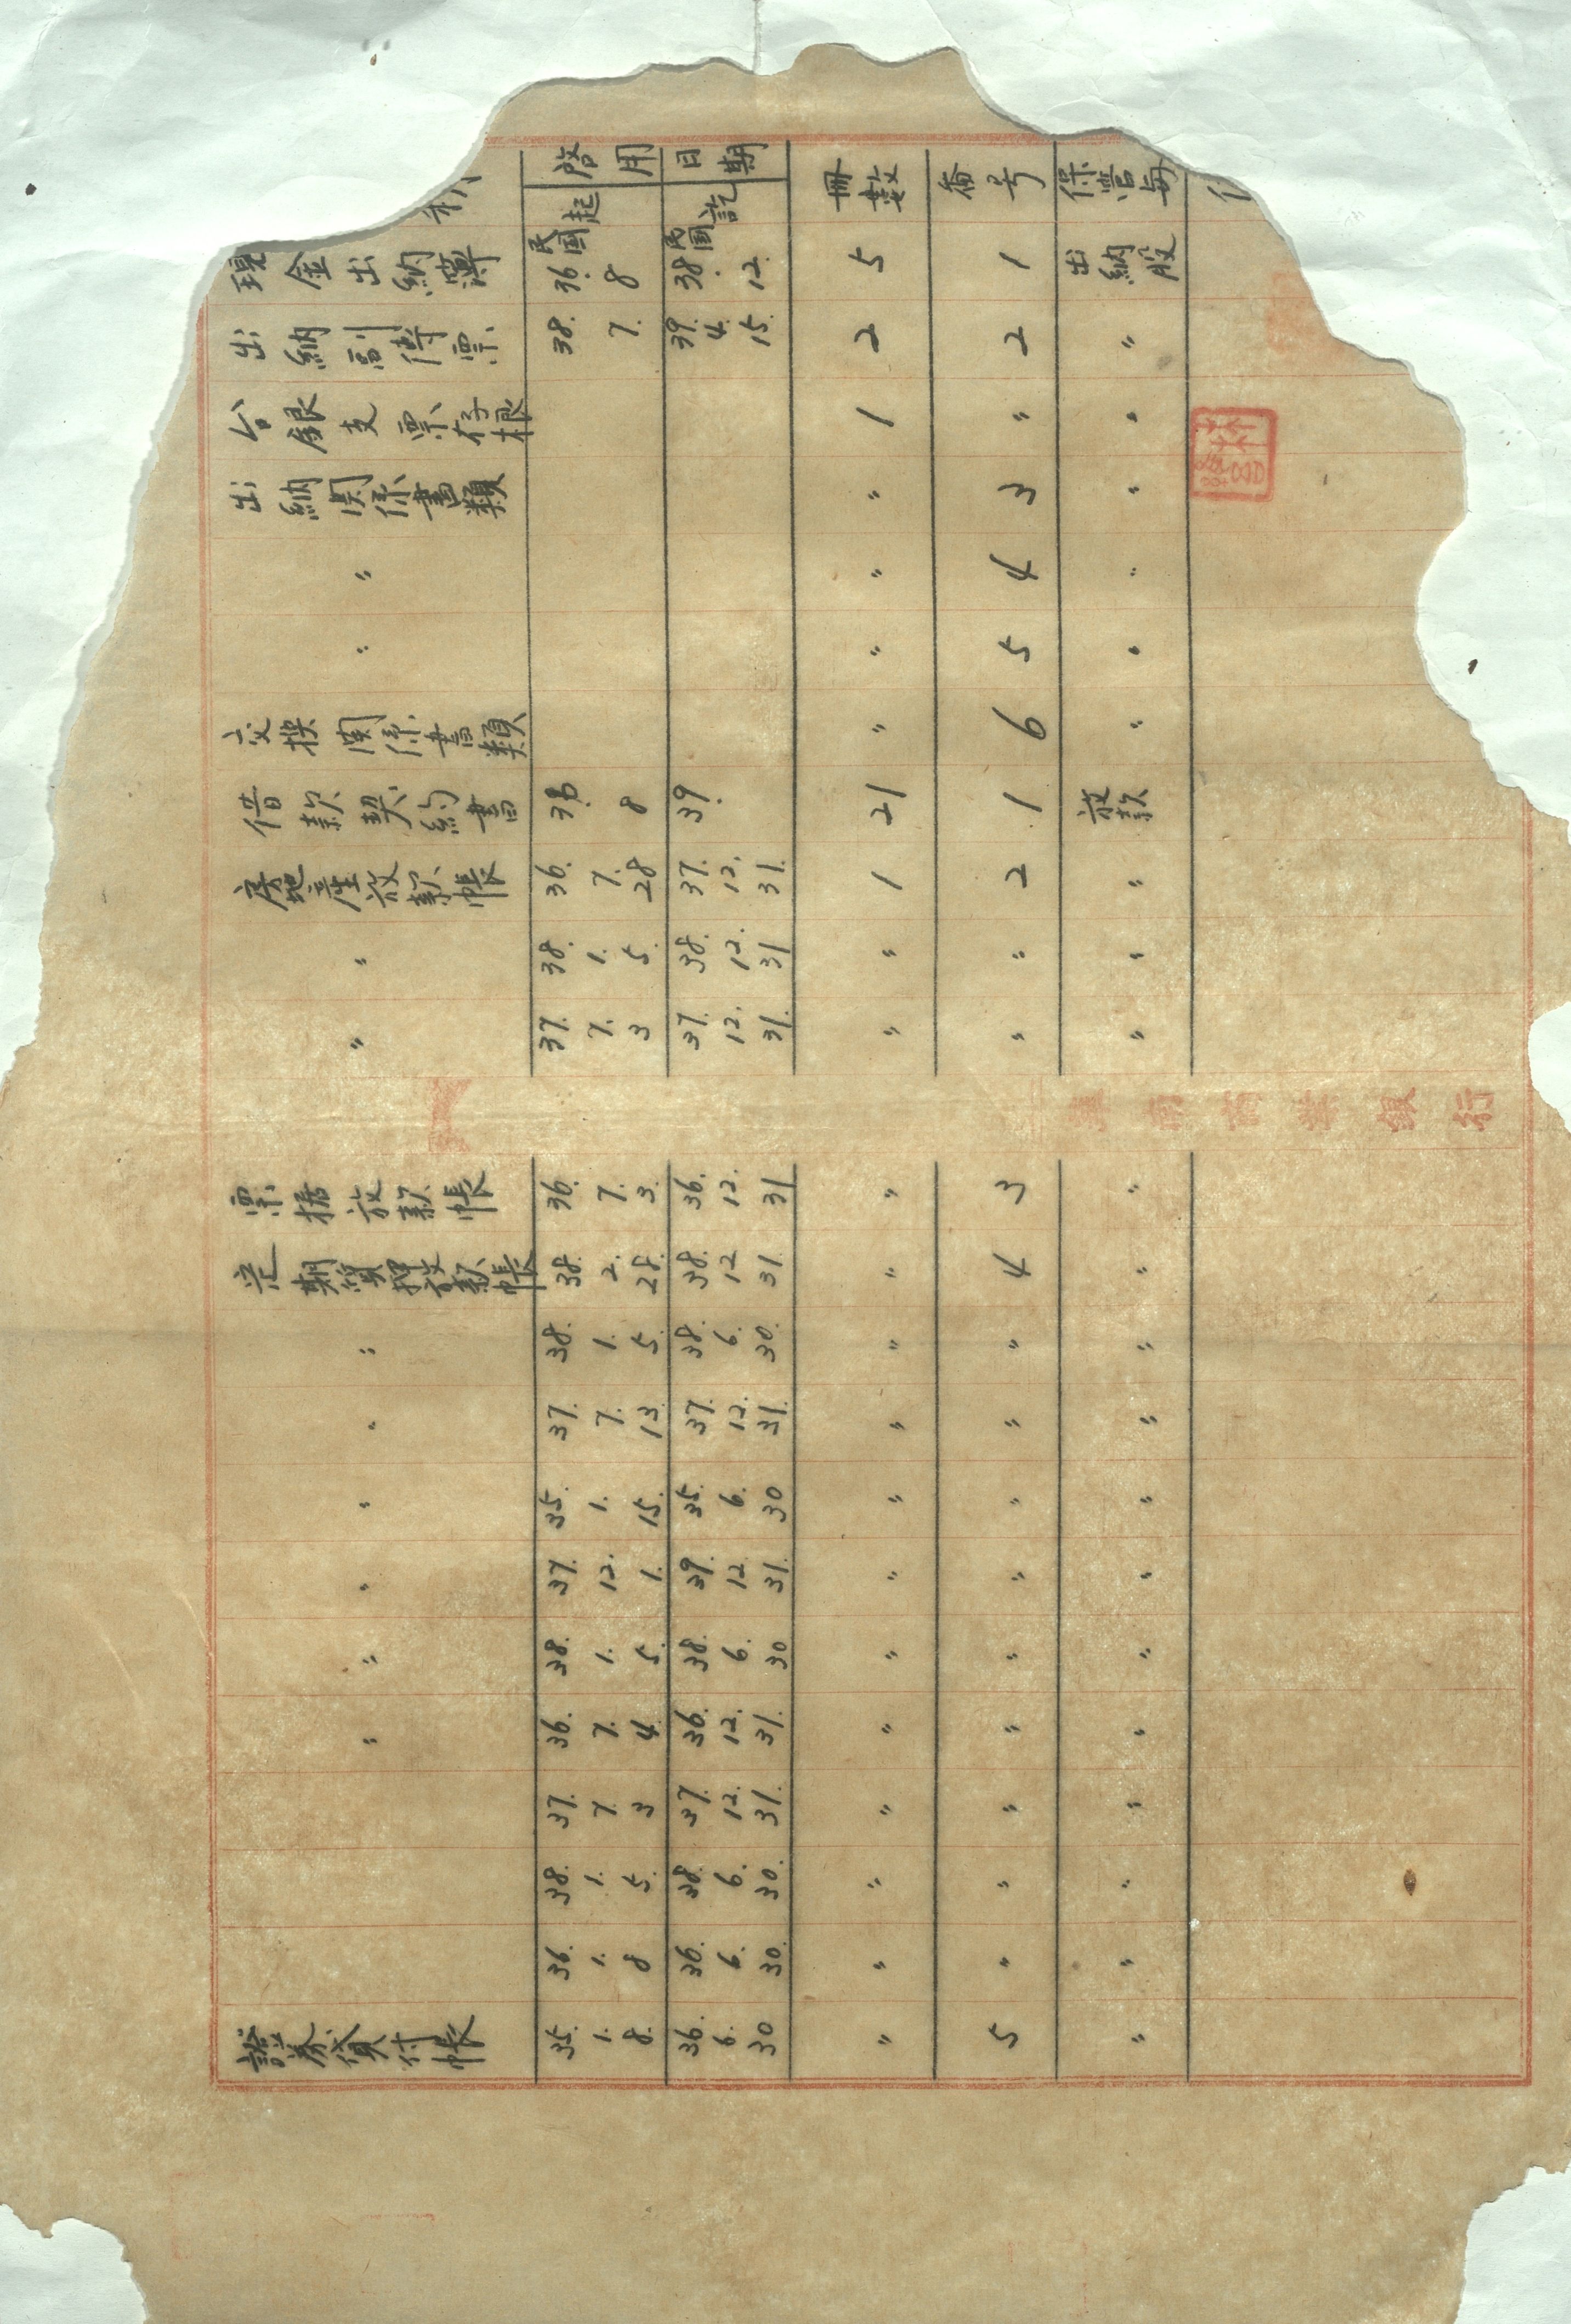 啓用日期 冊數 番号 保管
起 訖
現金出納簿 民国36. 8 民国38. 12. 5 1 出納股
出納副傳票 38. 7. 39. 4. 15. 2 2 〃
台銀支票存根 1 〃 〃
出納関係書類 〃 3 〃
〃 〃 4 〃
〃 〃 5 〃
交換関係書類 〃 6 〃
借款契約書 36. 8 39. 21 1 放款
房地產放款帳 36. 7. 28 37. 12. 31. 1 2 〃
〃 38. 1. 5. 38. 12. 31 〃 〃 〃
〃 37. 7. 3 37. 12. 31. 〃 〃 〃
業銀行
票据放款帳 36. 7. 3. 36. 12. 31 〃 3 〃
定期質押放款帳 38. 2. 28. 38. 12 31 〃 4 〃
〃 38. 1. 5. 38. 6. 30. 〃 〃 〃
〃 37. 7. 13. 37. 12. 31. 〃 〃 〃
〃 35. 1. 15. 35. 6. 30 〃 〃 〃
〃 37. 12. 1. 39. 12 31. 〃 〃 〃
〃 38. 1. 5. 38. 6. 30 〃 〃 〃
〃 36. 7. 4. 36. 12. 31. 〃 〃 〃
37. 7. 3 37. 12. 31. 〃 〃 〃
38. 1. 5. 38. 6. 30. 〃 〃 〃
36. 1. 8 36. 6. 30. 〃 〃 〃
證券貸付帳 35. 1. 8. 36. 6. 30 〃 5 〃